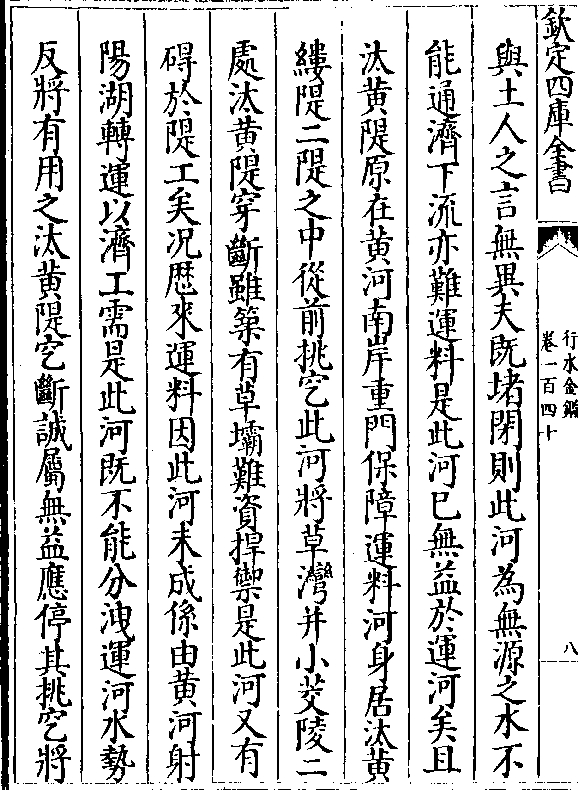 欽定四庫全書
行水金鑑
卷一百四十
八
與土人之言無異夫既堵閉則此河為無源之水不
能通濟下流亦難運料是此河已無益於運河矣且
汰黄隄原在黄河南岸重門保障運料河身居汰黄
縷隄二隄之中從前挑穵此河將草灣并小茭陵二
處汰黄隄穿斷雖築有草壩難資捍禦是此河又有
碍於隄工矣況歴來運料因此河未成係由黄河射
陽湖轉運以濟工需是此河既不能分洩運河水勢
反將有用之汰黄隄穵斷誠屬無益應停其挑穵將